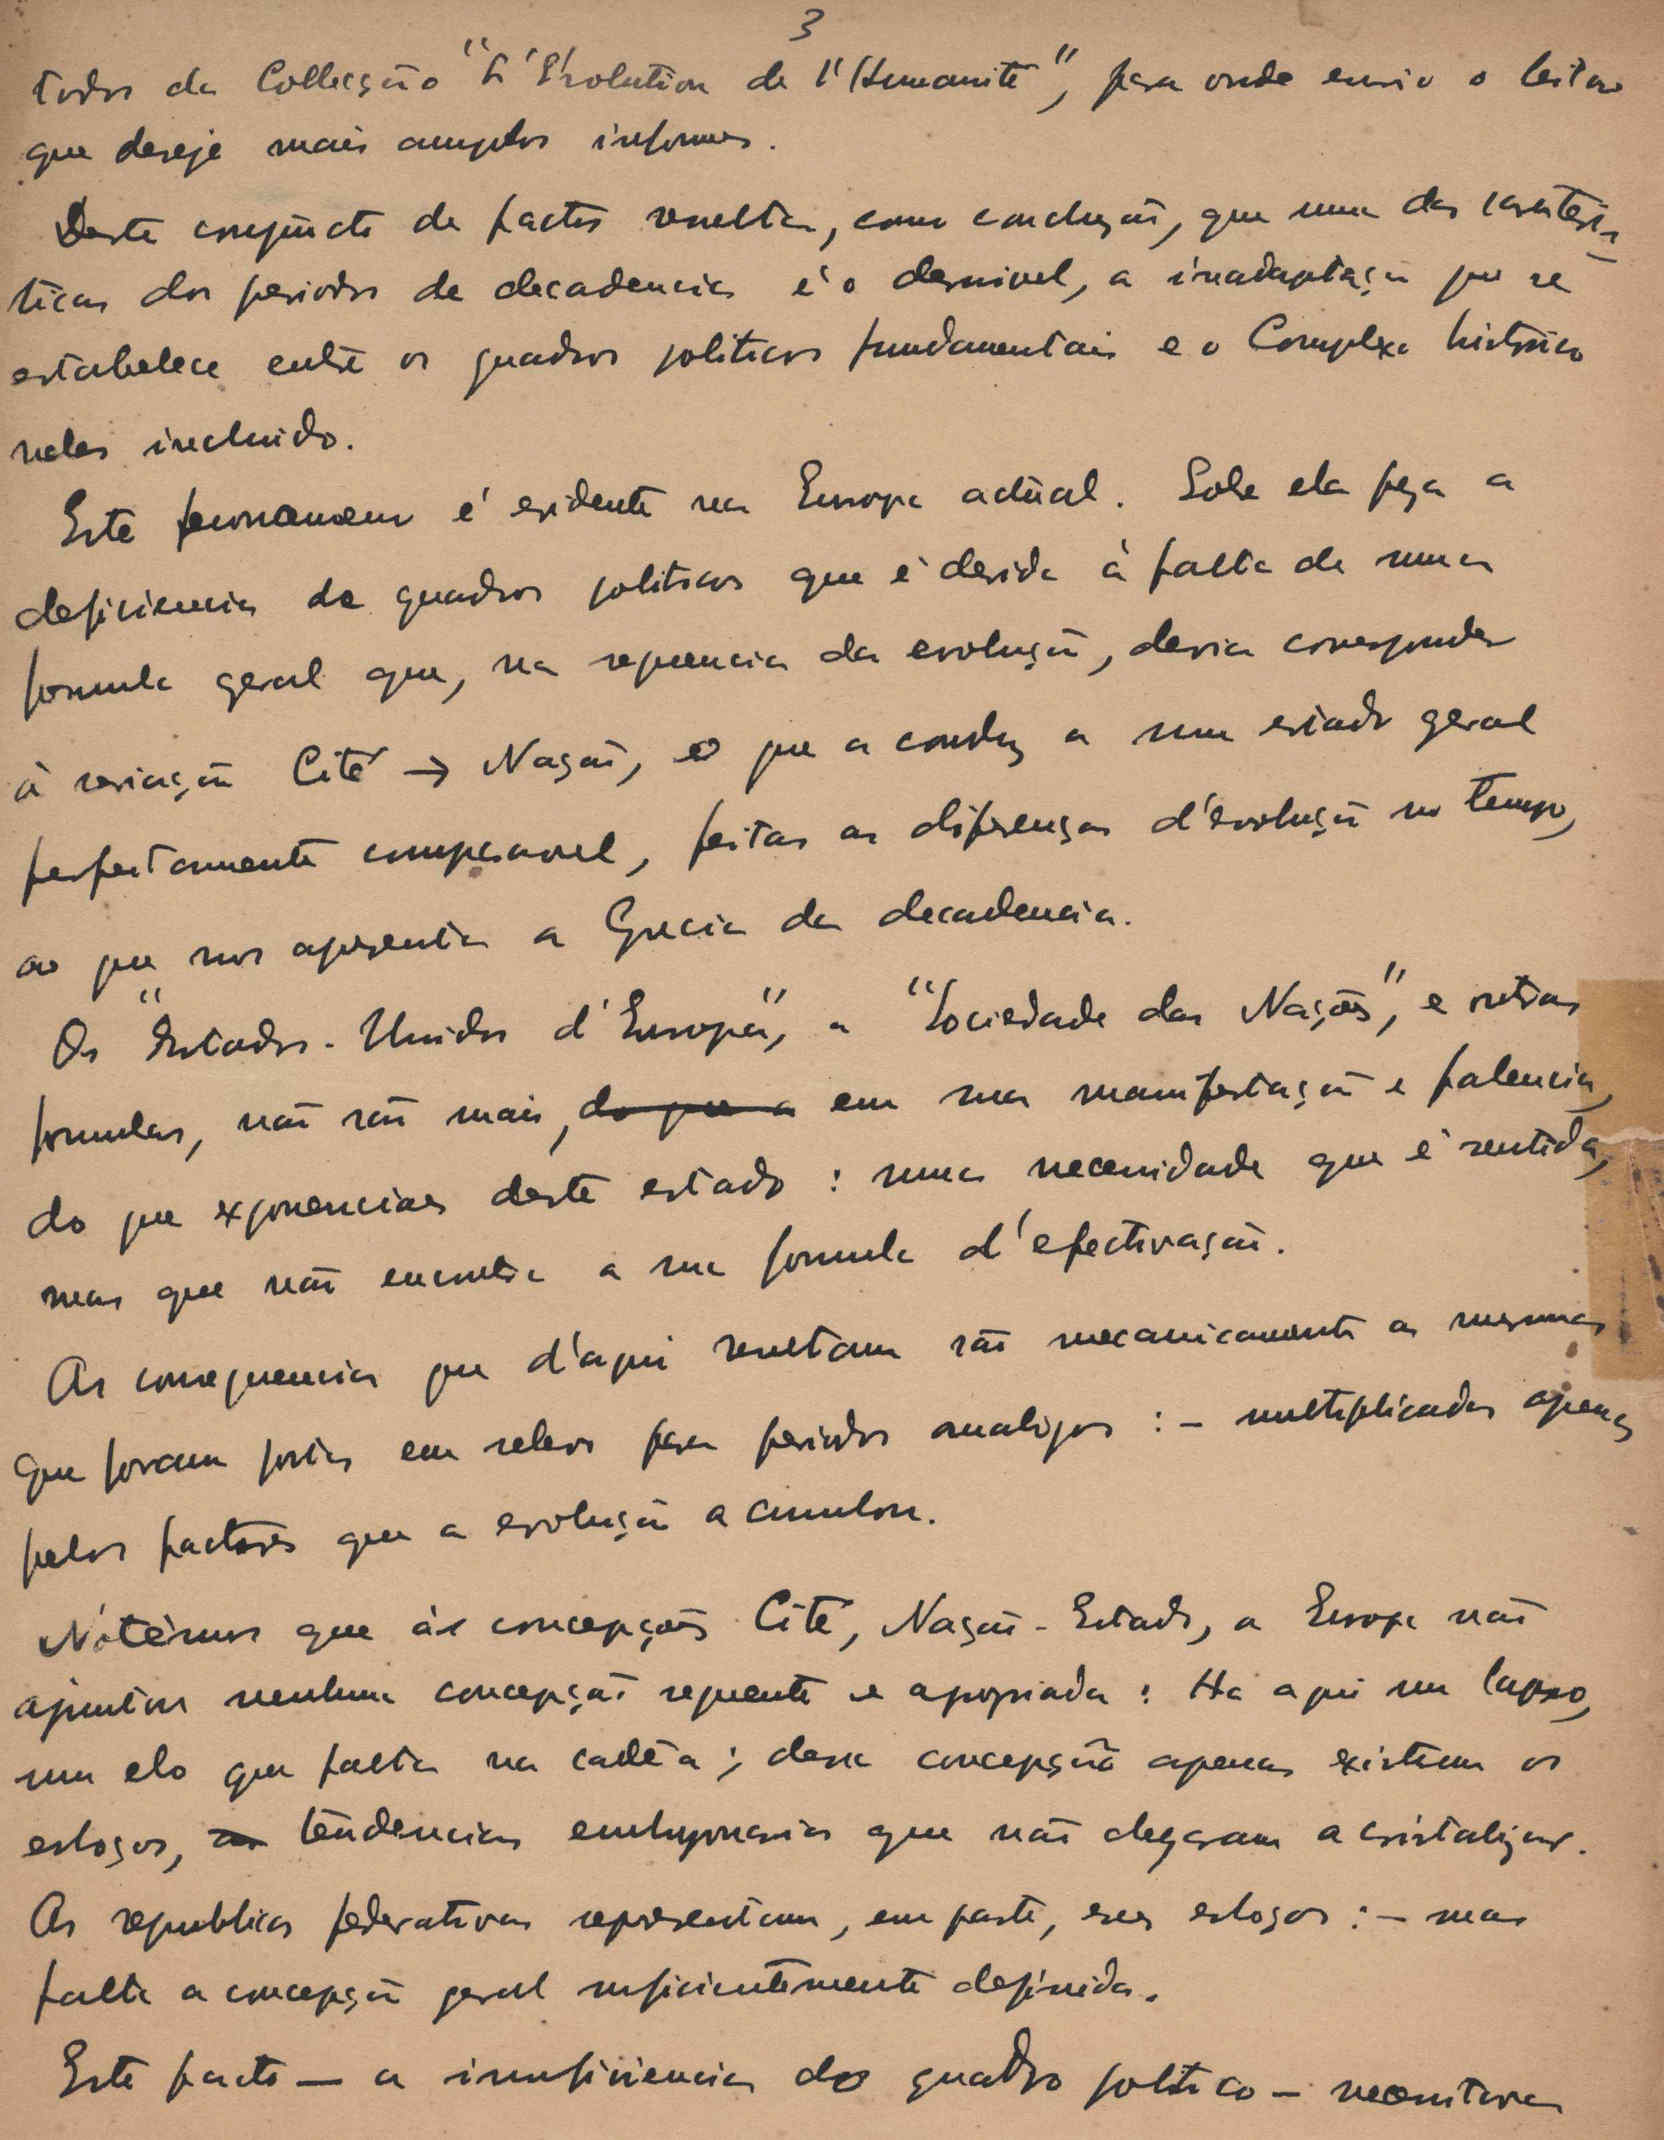 3
todos da Collecção "L'Evolution de l'Humanité", para onde envio o leitor
que deseje mais amplos informes.
Deste conjuncto de factos resulta, como conclusão, que uma das caracterís-
ticas dos periodos de decadencia é o desnivel, a inadaptação que se
estabelece entre os quadros politicos fundamentais e o Complexo histórico
neles incluido.
Este fenomeno é evidente na Europa actual. Sobre ela peza a
deficiencia de quadros politicos que é devida à falta de uma
formula geral que, na sequencia da evolução, devia corresponder
à variação Cité → Nação, o que a conduz a um estado geral
perfeitamente comparavel, feitas as diferenças d'evolução no tempo,
ao que nos apresenta a Grecia da decadencia.
Os "Estados-Unidos d'Europa", a "Sociedade das Nações", e outras
formulas, não são mais, do que a em sua manifestação e falencia,
do que exponencias deste estado: uma necessidade que é sentida,
mas que não encontra a sua formula d'efectivação.
As consequencias que d'aqui resultam são mecanicamente as mesmas
que foram postas em relevo para periodos analogos: - multiplicadas apenas
pelos factores que a evolução acumulou.
Notêmos que às concepções Cité, Nação-Estado, a Europa não
ajuntou nenhuma concepção sequente e apropiada: Ha aqui um lapso,
um elo que falta na cadêa; dessa concepção apenas existem os
esboços, as tendencias embryonarias que não chegaram a cristalizar.
As republicas federativas representam, em parte, esses esboços: - mas
falta a concepção geral suficientemente definida.
Este facto — a insuficiencia do quadro politico — necessitava